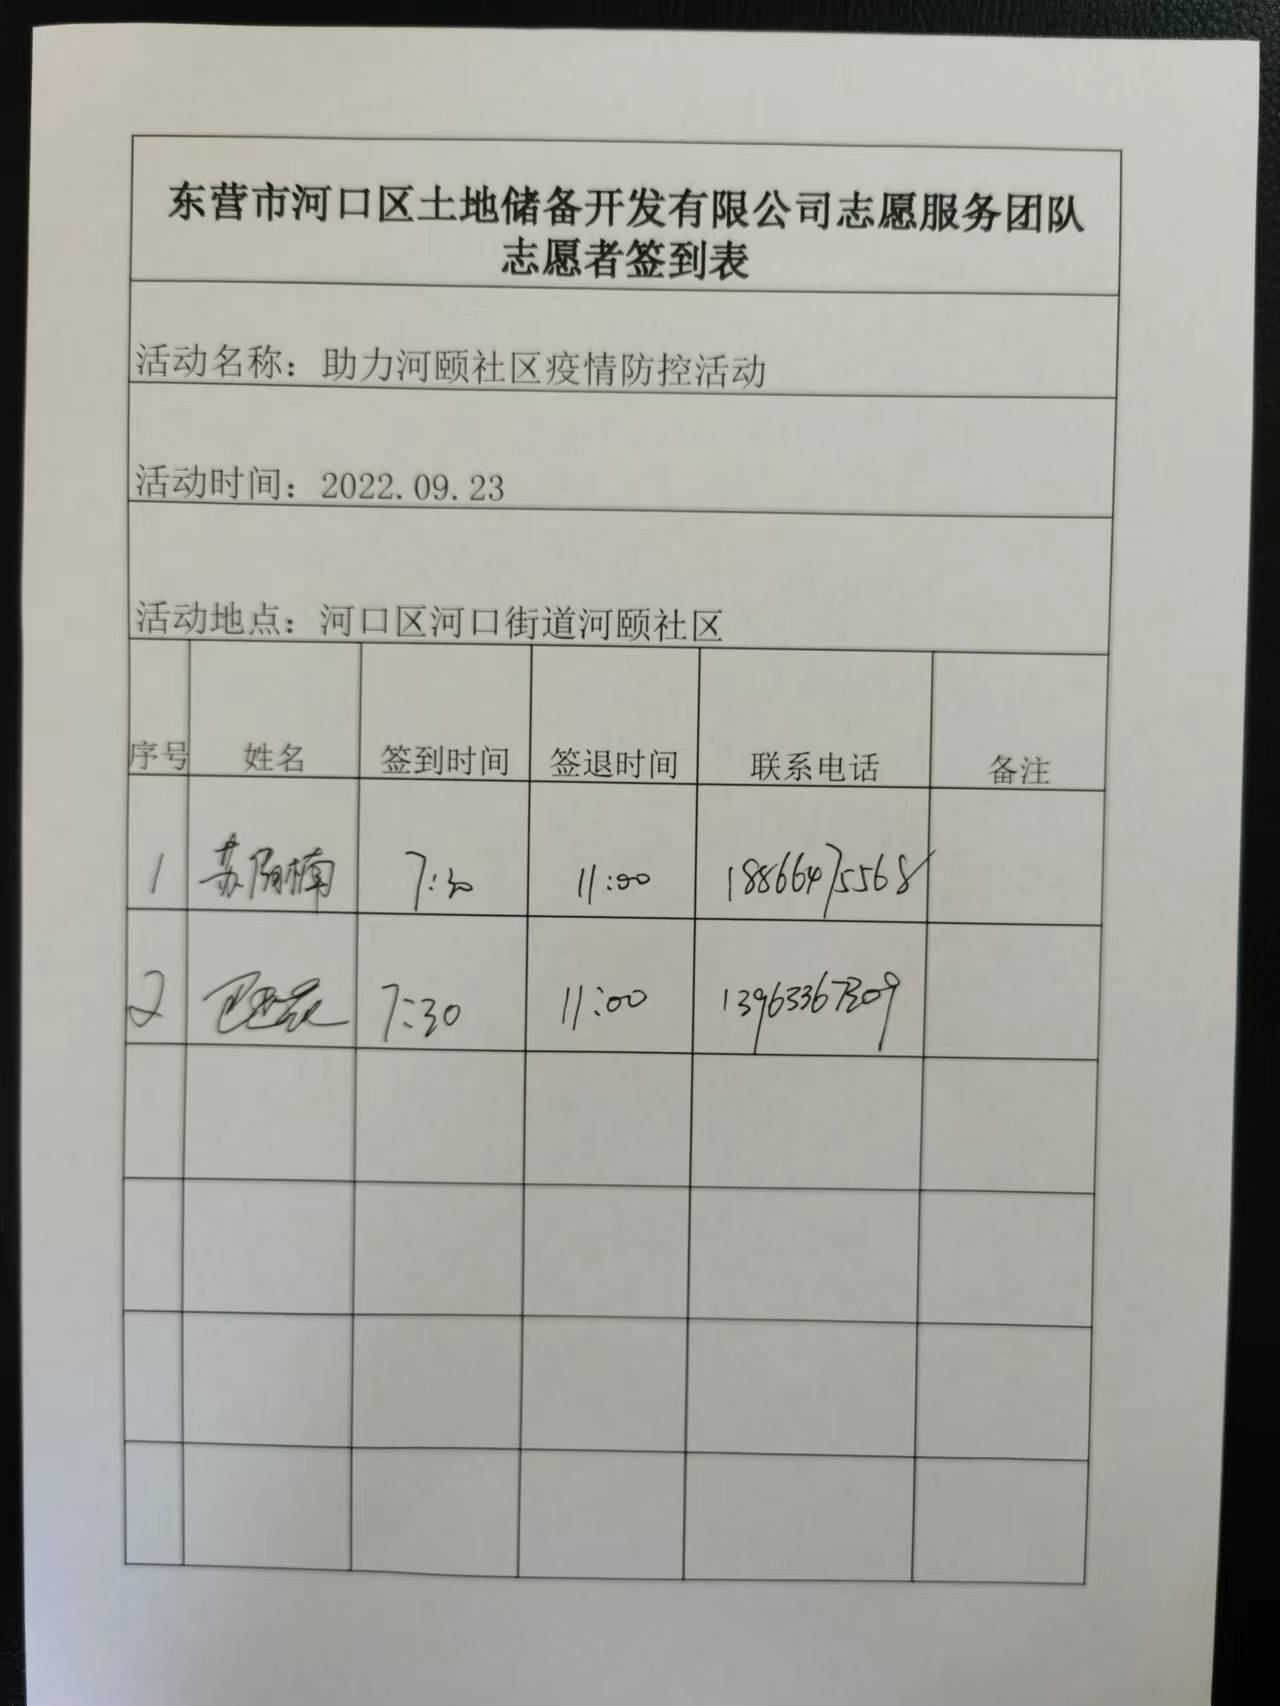 东营市河口区土地储备开发有限公司志愿服务团队
志愿者签到表
活动名称：助力河颐社区疫情防控活动
活动时间：2022.09.23
活动地点：河口区河口街道河颐社区
序号 姓名 签到时间 签退时间 联系电话 备注
1 苏 楠 7:30 11:00 18866475568
2 7:30 11:00